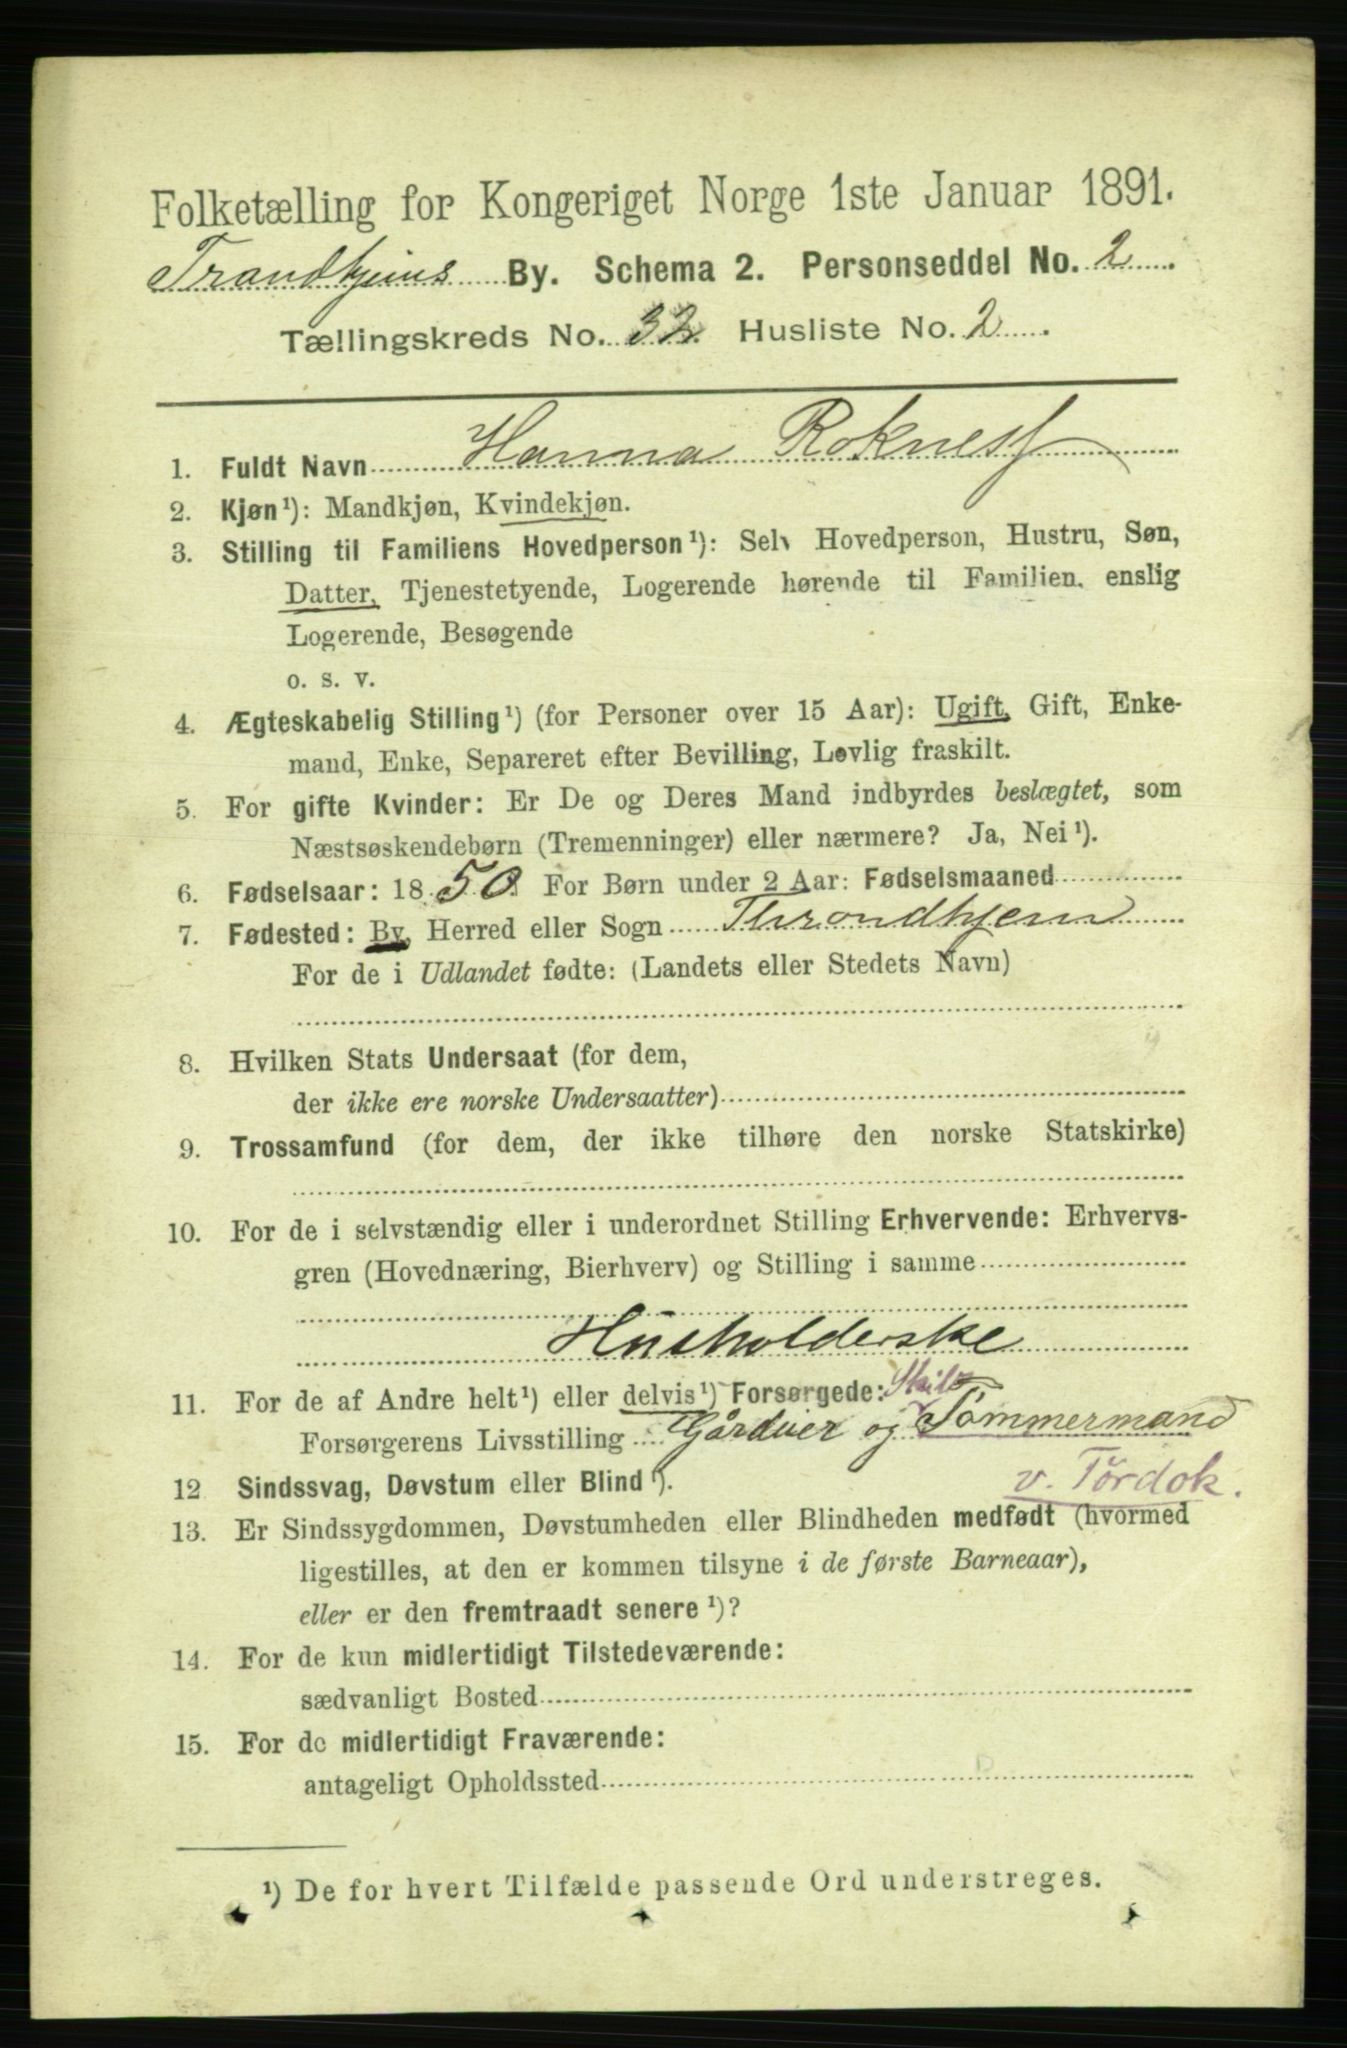 Folketælling for Kongeriget Norge 1ste Januar 1891.
Trondhjems By. Schema 2. Personseddel No. 2
Tællingskreds No. 32 Husliste No. 2
1. Fuldt Navn Hanna Roknes
2. Kjøn¹): Mandkjøn, Kvindekjøn.
3. Stilling til Familiens Hovedperson¹): Selv Hovedperson, Hustru, Søn,
Datter, Tjenestetyende, Logerende hørende til Familien, enslig
Logerende, Besøgende
o. s. v.
4. Ægteskabelig Stilling¹) (for Personer over 15 Aar): Ugift, Gift, Enke-
mand, Enke, Separeret efter Bevilling, Lovlig fraskilt.
5. For gifte Kvinder: Er De og Deres Mand indbyrdes beslægtet, som
Næstsøskendebørn (Tremenninger) eller nærmere? Ja, Nei¹).
6. Fødselsaar: 1850. For Børn under 2 Aar: Fødselsmaaned
7. Fødested: By, Herred eller Sogn Throndhjem
For de i Udlandet fødte: (Landets eller Stedets Navn)
8. Hvilken Stats Undersaat (for dem,
der ikke ere norske Undersaatter)
9. Trossamfund (for dem, der ikke tilhøre den norske Statskirke)
10. For de i selvstændig eller i underordnet Stilling Erhvervende: Erhvervs-
gren (Hovednæring, Bierhverv) og Stilling i samme
Husholderske
11. For de af Andre helt¹) eller delvis¹) Forsørgede:
Forsørgerens Livsstilling Gårdeier og Tømmermand
v. Tördok.
12 Sindssvag, Døvstum eller Blind¹).
13. Er Sindssygdommen, Døvstumheden eller Blindheden medfødt (hvormed
ligestilles, at den er kommen tilsyne i de første Barneaar),
eller er den fremtraadt senere¹)?
14. For de kun midlertidigt Tilstedeværende:
sædvanligt Bosted
15. For de midlertidigt Fraværende:
antageligt Opholdssted
¹) De for hvert Tilfælde passende Ord understreges.